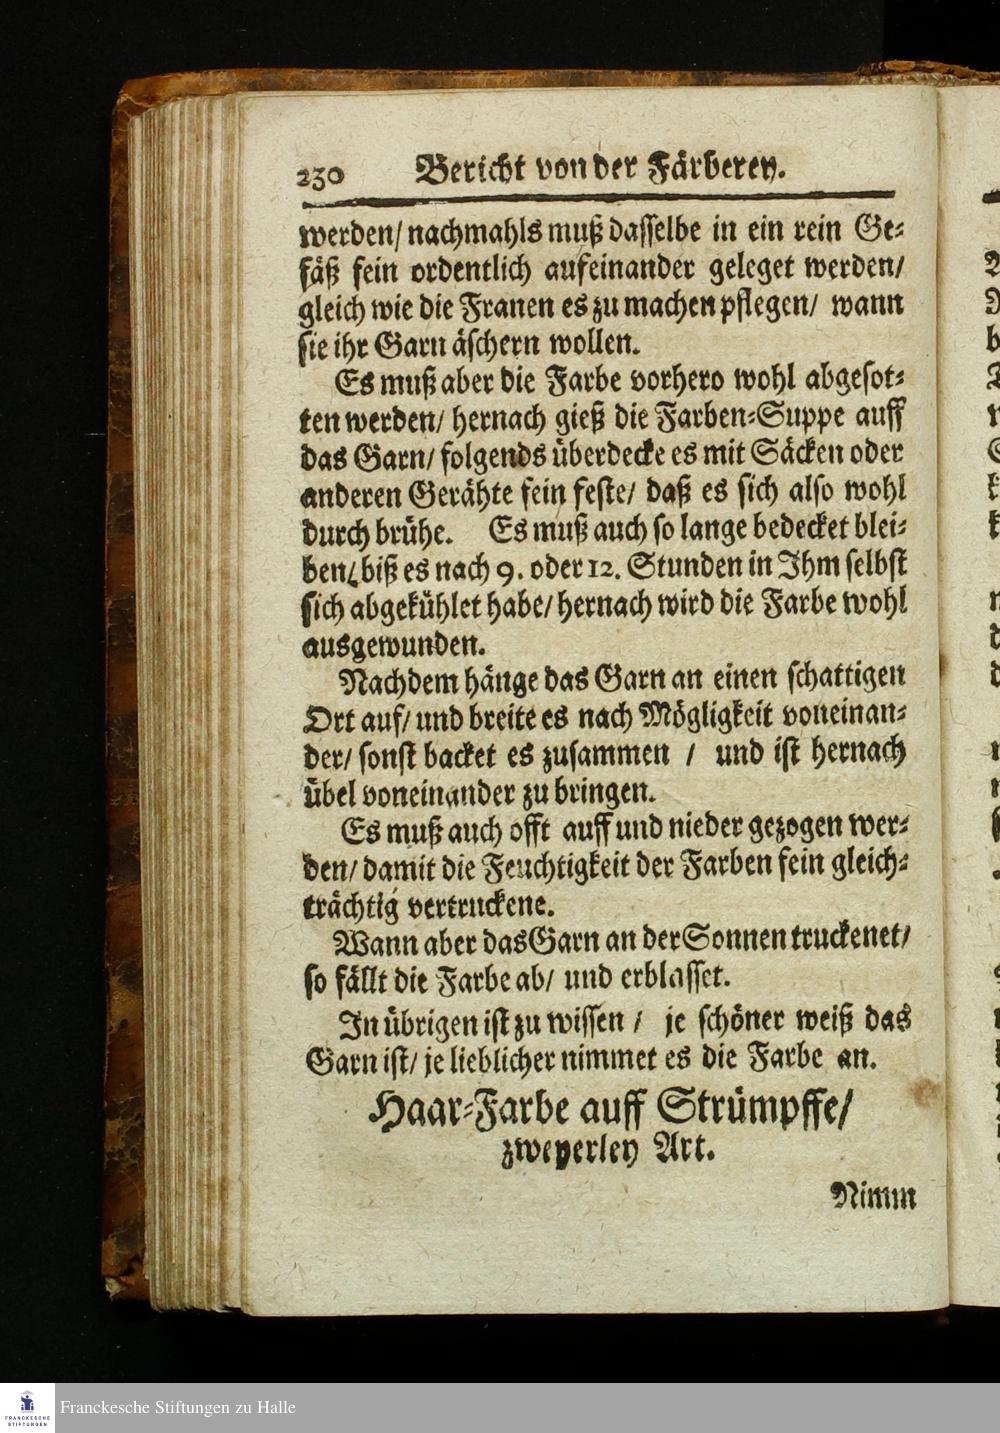 230 Bericht von der Färberey.
werden/ nachmahls muß dasselbe in ein rein Ge-
fäß fein ordentlich aufeinander geleget werden/
gleich wie die Franen es zu machen pflegen/ wann
sie ihr Garn äschern wollen.
Es muß aber die Farbe vorhero wohl abgesot-
ten werden/ hernach gieß die Farben-Suppe auff
das Garn/ folgends überdecke es mit Säcken oder
anderen Gerähte fein feste/ daß es sich also wohl
durch brühe. Es muß auch so lange bedecket blei-
ben/ biß es nach 9. oder 12. Stunden in Ihm selbst
sich abgekühlet habe/ hernach wird die Farbe wohl
ausgewunden.
Nachdem hänge das Garn an einen schattigen
Ort auf/ und breite es nach Mögligkeit voneinan-
der/ sonst backet es zusammen / und ist hernach
übel voneinander zu bringen.
Es muß auch offt auff und nieder gezogen wer-
den/ damit die Feuchtigkeit der Farben fein gleich-
trächtig vertruckene.
Wann aber das Garn an der Sonnen truckenet/
so fällt die Farbe ab/ und erblasset.
In übrigen ist zu wissen / je schöner weiß das
Garn ist/ je lieblicher nimmet es die Farbe an.
Haar-Farbe auff Strümpffe/
zweyerley Art.
Nimm
FRANCKESCHE
STIFTUNGEN
Franckesche Stiftungen zu Halle